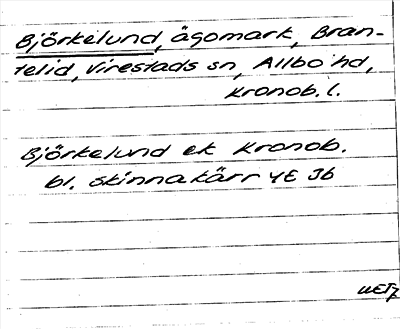 Björkelund, ägomark, Bran-
telid, Virestads sn, Allbo hd,
Kronob. l.
Björkelund ek Kronob.
bl. Skinnakärr YE Jb